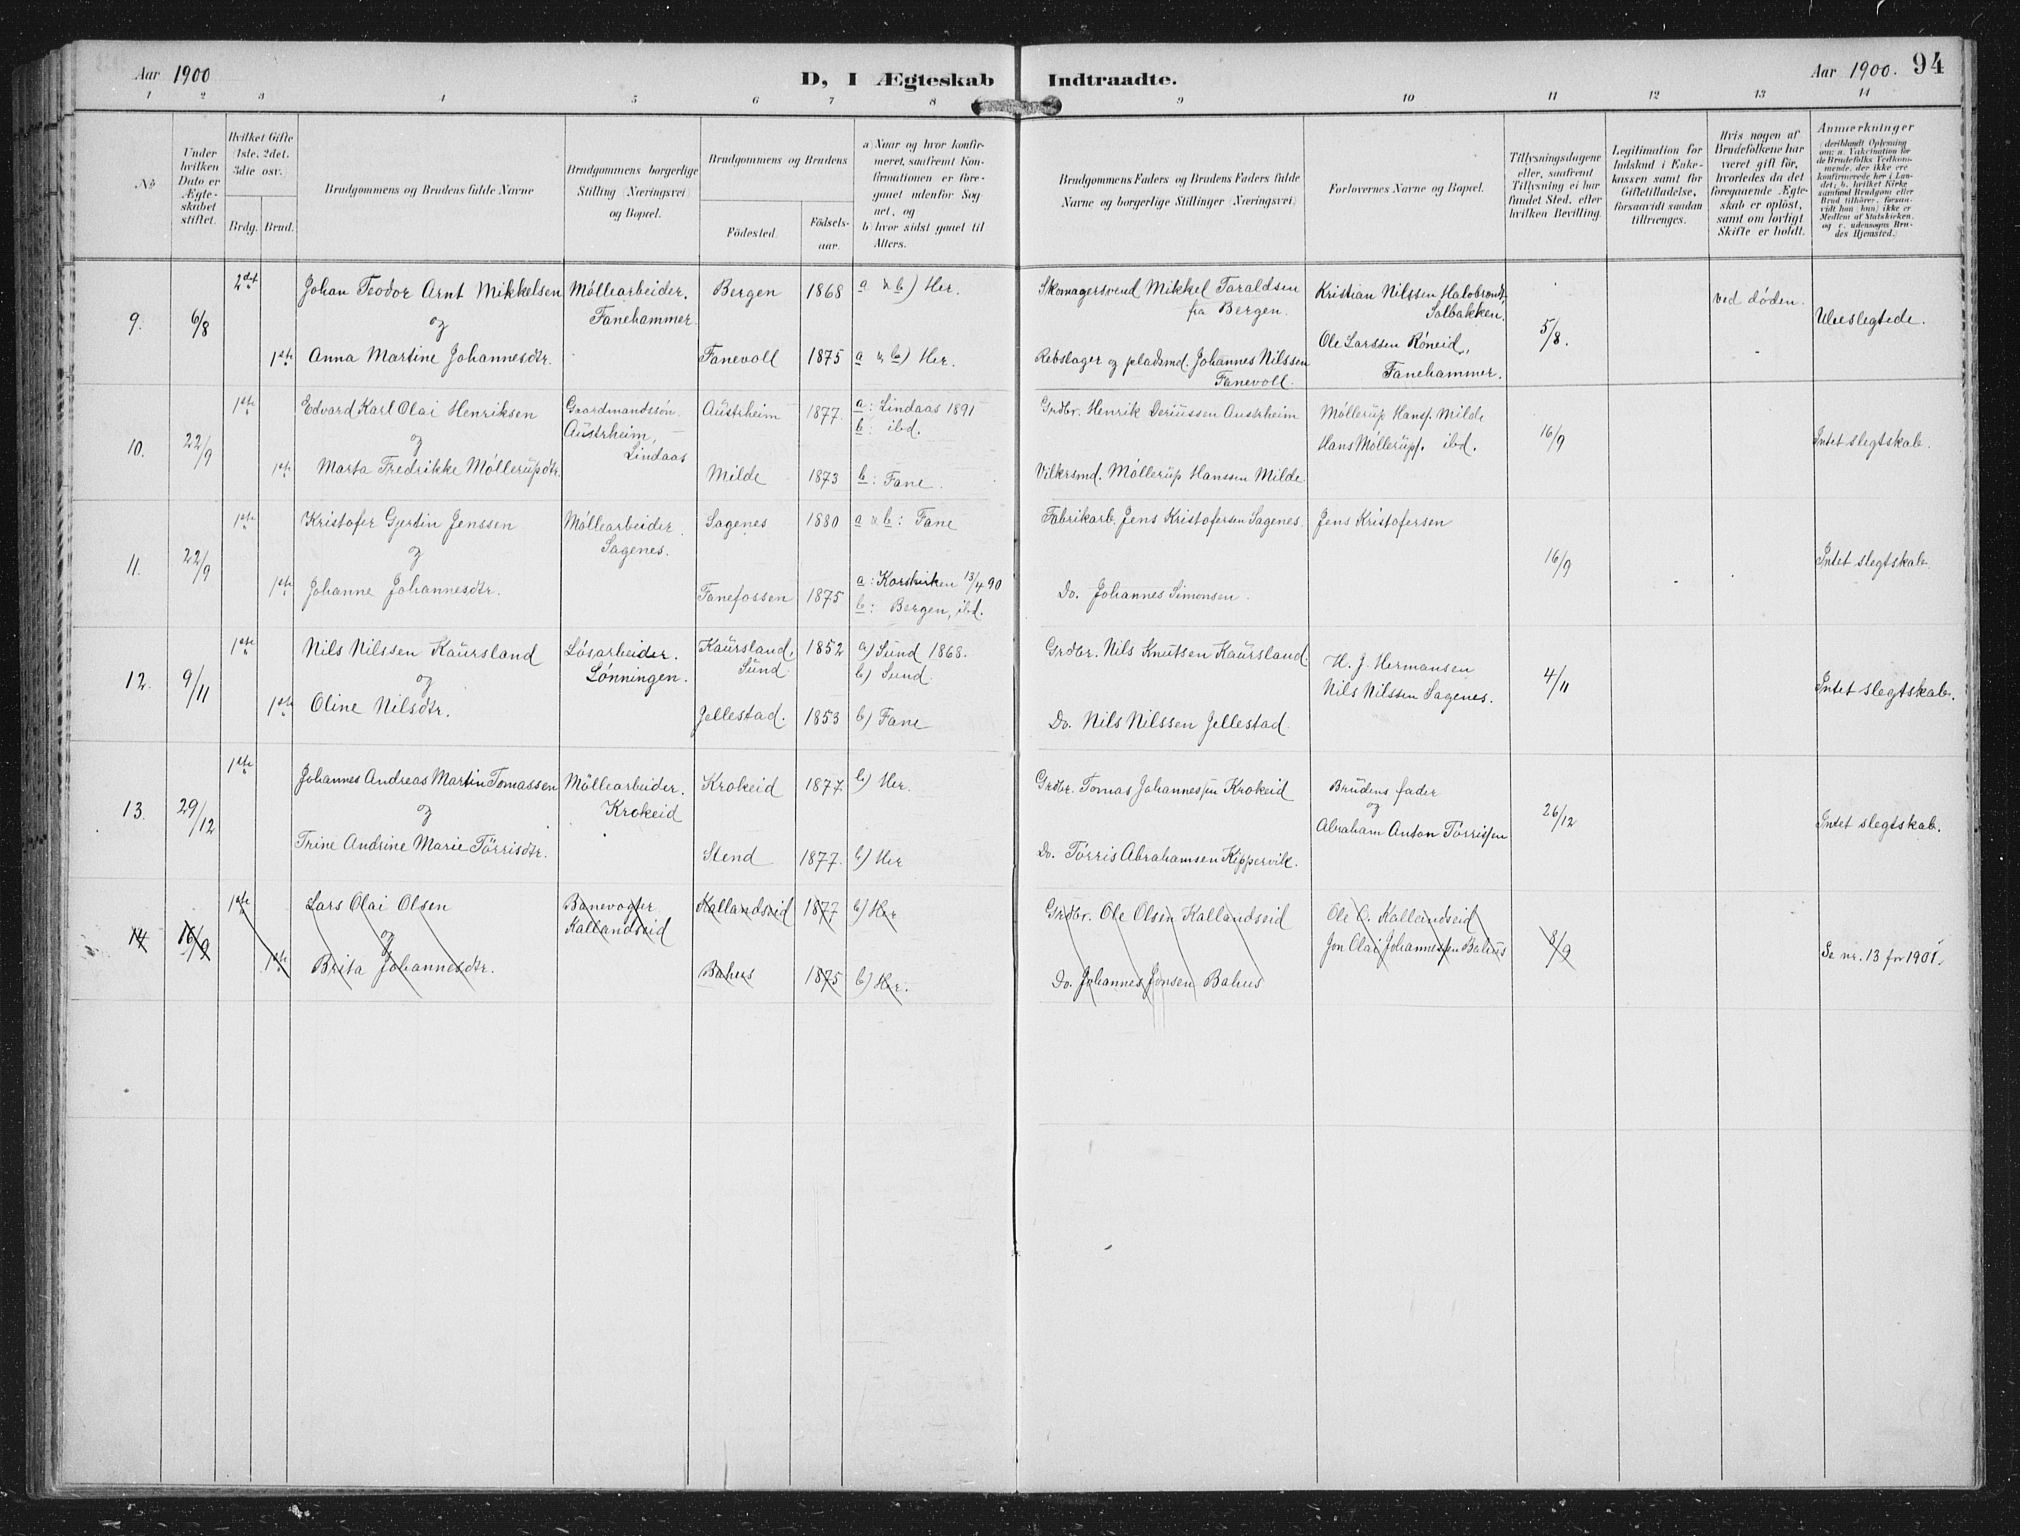 Aar 1900
D, I Ægteskab Indtraadte.
Aar 1900. 94
1 2 3 4 5 6 7 8 9 10 11 12 13 14
No
Under hvilken Dato er Ægteskabet stiftet.
Hvilket Gifte (1ste, 2det, 3die osv.
Brdg. Brud.
Brudgommens og Brudens fulde Navne
Brudgommens borgerlige Stilling (Næringsvei) og Bopæl.
Brudgommens og Brudens
Födested.
Födselsaar.
a) Naar og hvor konfirmeret, saafremt Konfirmationen er foregaaet udenfor Sognet, og
b) hvor sidst gaaet til Alters.
Brudgommens Faders og Brudens Faders fulde Navne og borgerlige Stillinger (Næringsvei)
Forlovernes Navne og Bopæl.
Tillysningsdagene eller, saafremt Tillysning ei har fundet Sted, efter hvilken Bevilling.
Legitimation for Indskud i Enkekassen samt for Giftetilladelse, forsaavidt saadan tiltrænges.
Hvis nogen af Brudefolkene har været gift för, hvorledes da det foregaaende Ægteskab er oplöst, samt om lovligt Skifte er holdt.
Anmerkninger (deriblandt Oplysning om: a. Vakcination for de Brudefolks Vedkommende, der ikke ere konfirmerede her i Landet; b. hvilket Kirkesamfund Brudgom eller Brud tilhörer, forsaavidt han (hun) ikke er Medlem af Statskirken, og c. udensogns Brudes Hjemsted.
9. 6/8 2det Johan Teodor Arnt Mikkelsen Møllearbeider. Fanehammer. Bergen 1868 a & b) Her. Skomagersvend Mikkel Taraldsen fra Bergen. Kristian Nilssen Solbakken. 5/8. ved døden. Ubeslegtede.
og
1ste Anna Martine Johannesdtr. Fanevoll 1875 a & b) Her. Rebslager og pladsmd. Johannes Nilssen Fanevoll. Ole Larssen Röneid, Fanehammer.
10. 22/9 1ste Edvard Karl Olai Henriksen Gaardmandssøn. Austrheim, Lindaas Austrheim 1877. a: Lindaas 1891 b: ibd. Grdbr. Henrik Deriussen Austrheim Møllerup Hanss. Milde 16/9 Intet slegtskab.
og
1ste Marta Fredrikke Møllerupdtr. Milde 1873 b: Fane. Vilkrsmd. Møllerup Hanssen Milde Hans Møllerups. ibd.
11. 22/9 1ste Kristofer Gjertin Jenssen Møllearbeider. Sagenes. Sagenes 1880 a & b: Fane Fabrikarb. Jens Kristofersen Sagenes. Jens Kristofersen 16/9 Intet slegtskab.
og
1ste Johanne Johannesdtr. Fanefossen 1875 a: Korskirken 13/4 90 b: Bergen, ibd. Do. Johannes Simonsen.
12. 9/11 1ste Nils Nilssen Kaursland Løsarbeider. Lønningen. Kaursland, Sund 1852 a) Sund 1868. b) Sund. Grdbr. Nils Knutsen Kaursland. H. J. Hermansen 4/11 Intet slegtskab.
og
1ste Oline Nilsdtr. Jellestad. 1853 b) Fane Do. Nils Nilssen Jellestad. Nils Nilssen Sagenes.
13. 29/12 1ste Johannes Andreas Martin Tomassen Møllearbeider. Krokeid Krokeid 1877. b) Her. Grdbr. Tomas Johannessen Krokeid Brudens fader 26/12 Intet slegtskab.
og
Trine Andrine Marie Törrisdtr. Stend 1877. b) Her Do. Törris Abrahamsen Kippervik. og Abraham Anton Törrissen
14 16/9 1ste Lars Olai Olsen Banevogter Kallandseid Kallandseid 1877 b) Her Grdbr. Ole Olsen Kallandseid Ole O. Kallandseid 8/9 Se nr. 13 for 1901.
og
1ste Brita Johannesdtr. Bahus 1875 b) Her. Do. Johannes Jonsen Bahus Jon Olai Johannessen Bahus